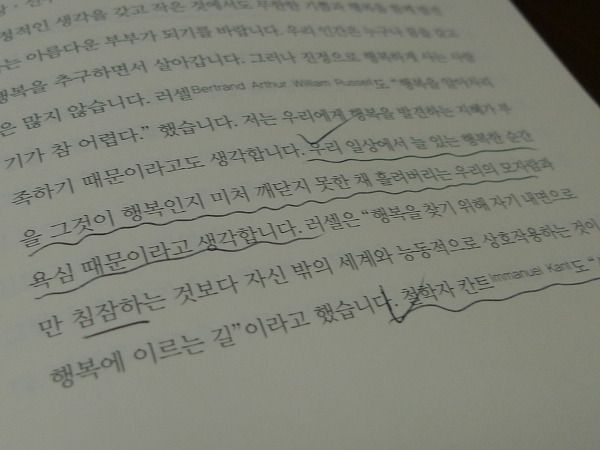 정적인 생각을 갖고 작은 것에서도 무한한 기쁨과 행복을 함께
는 아름다운 부부가 되기를 바랍니다. 우리 인간은 누구나
행복을 추구하면서 살아갑니다. 그러나 진정으로 행복하게 사는 사람
은 많지 않습니다. 러셀Bertrand Arthur William Russel도 “행복을 알아차리
기가 참 어렵다.” 했습니다. 저는 우리에게 행복을 발견하는 지혜가 부
족하기 때문이라고도 생각합니다. 우리 일상에서 늘 있는 행복한 순간
을 그것이 행복인지 미처 깨닫지 못한 채 흘려버리는 우리의 모자람과
욕심 때문이라고 생각합니다. 러셀은 “행복을 찾기 위해 자기 내면으로
만 침잠하는 것보다 자신 밖의 세계와 능동적으로 상호작용하는 것이
행복에 이르는 길”이라고 했습니다. 철학자 칸트Immanuel Kant도 “